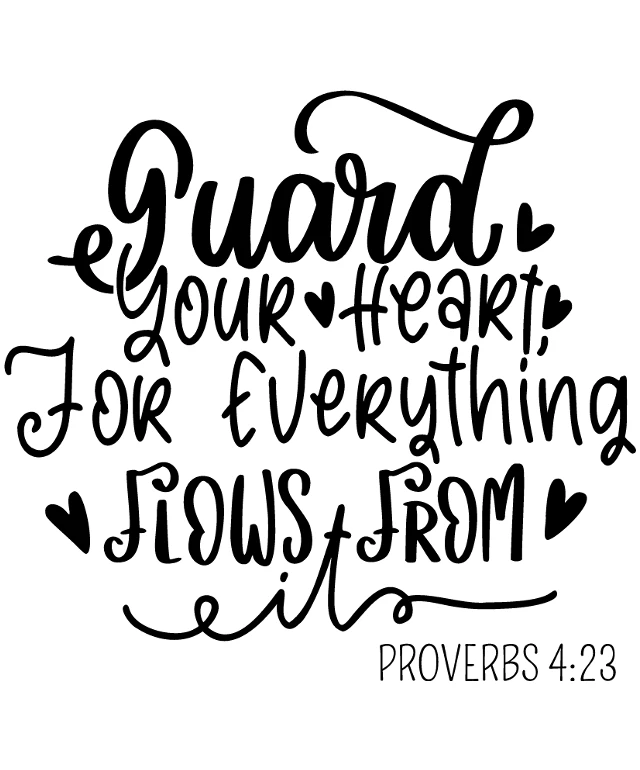 Guard
Your Heart,
For Everything
Flows From
it
PROVERBS 4:23